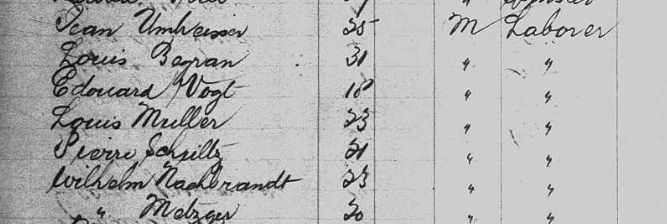 Jean Umheisser 25 M Laborer
Louis Begran 31 " "
Edouard Vogt 18 " "
Louis Muller 23 " "
Pierre Schiltz 21 " "
Wilhelm Nachbrandt 23 " "
" Metzger 20 " "